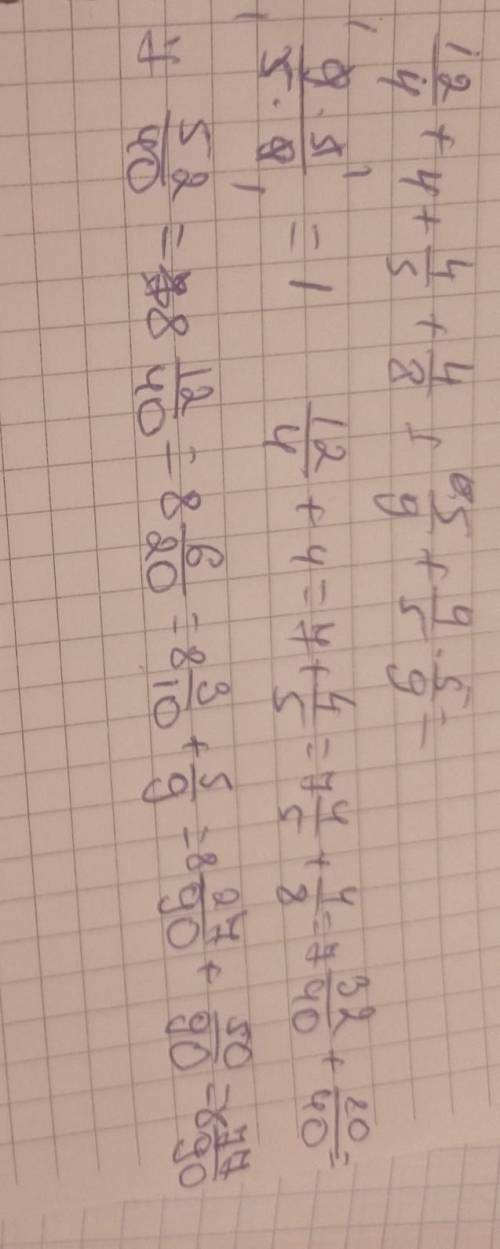 12/4 + 4 + 4/5 + 4/8 + 5/9 + 9/5 · 5/9 =
9 · 5 / 5 · 9 = 1
12/4 + 4 = 7 + 4/5 = 7 4/5 + 4/8 = 7 32/40 + 20/40 =
7 52/40 = 8 12/40 = 8 6/20 = 8 3/10 + 5/9 = 8 27/90 + 50/90 = 8 77/90